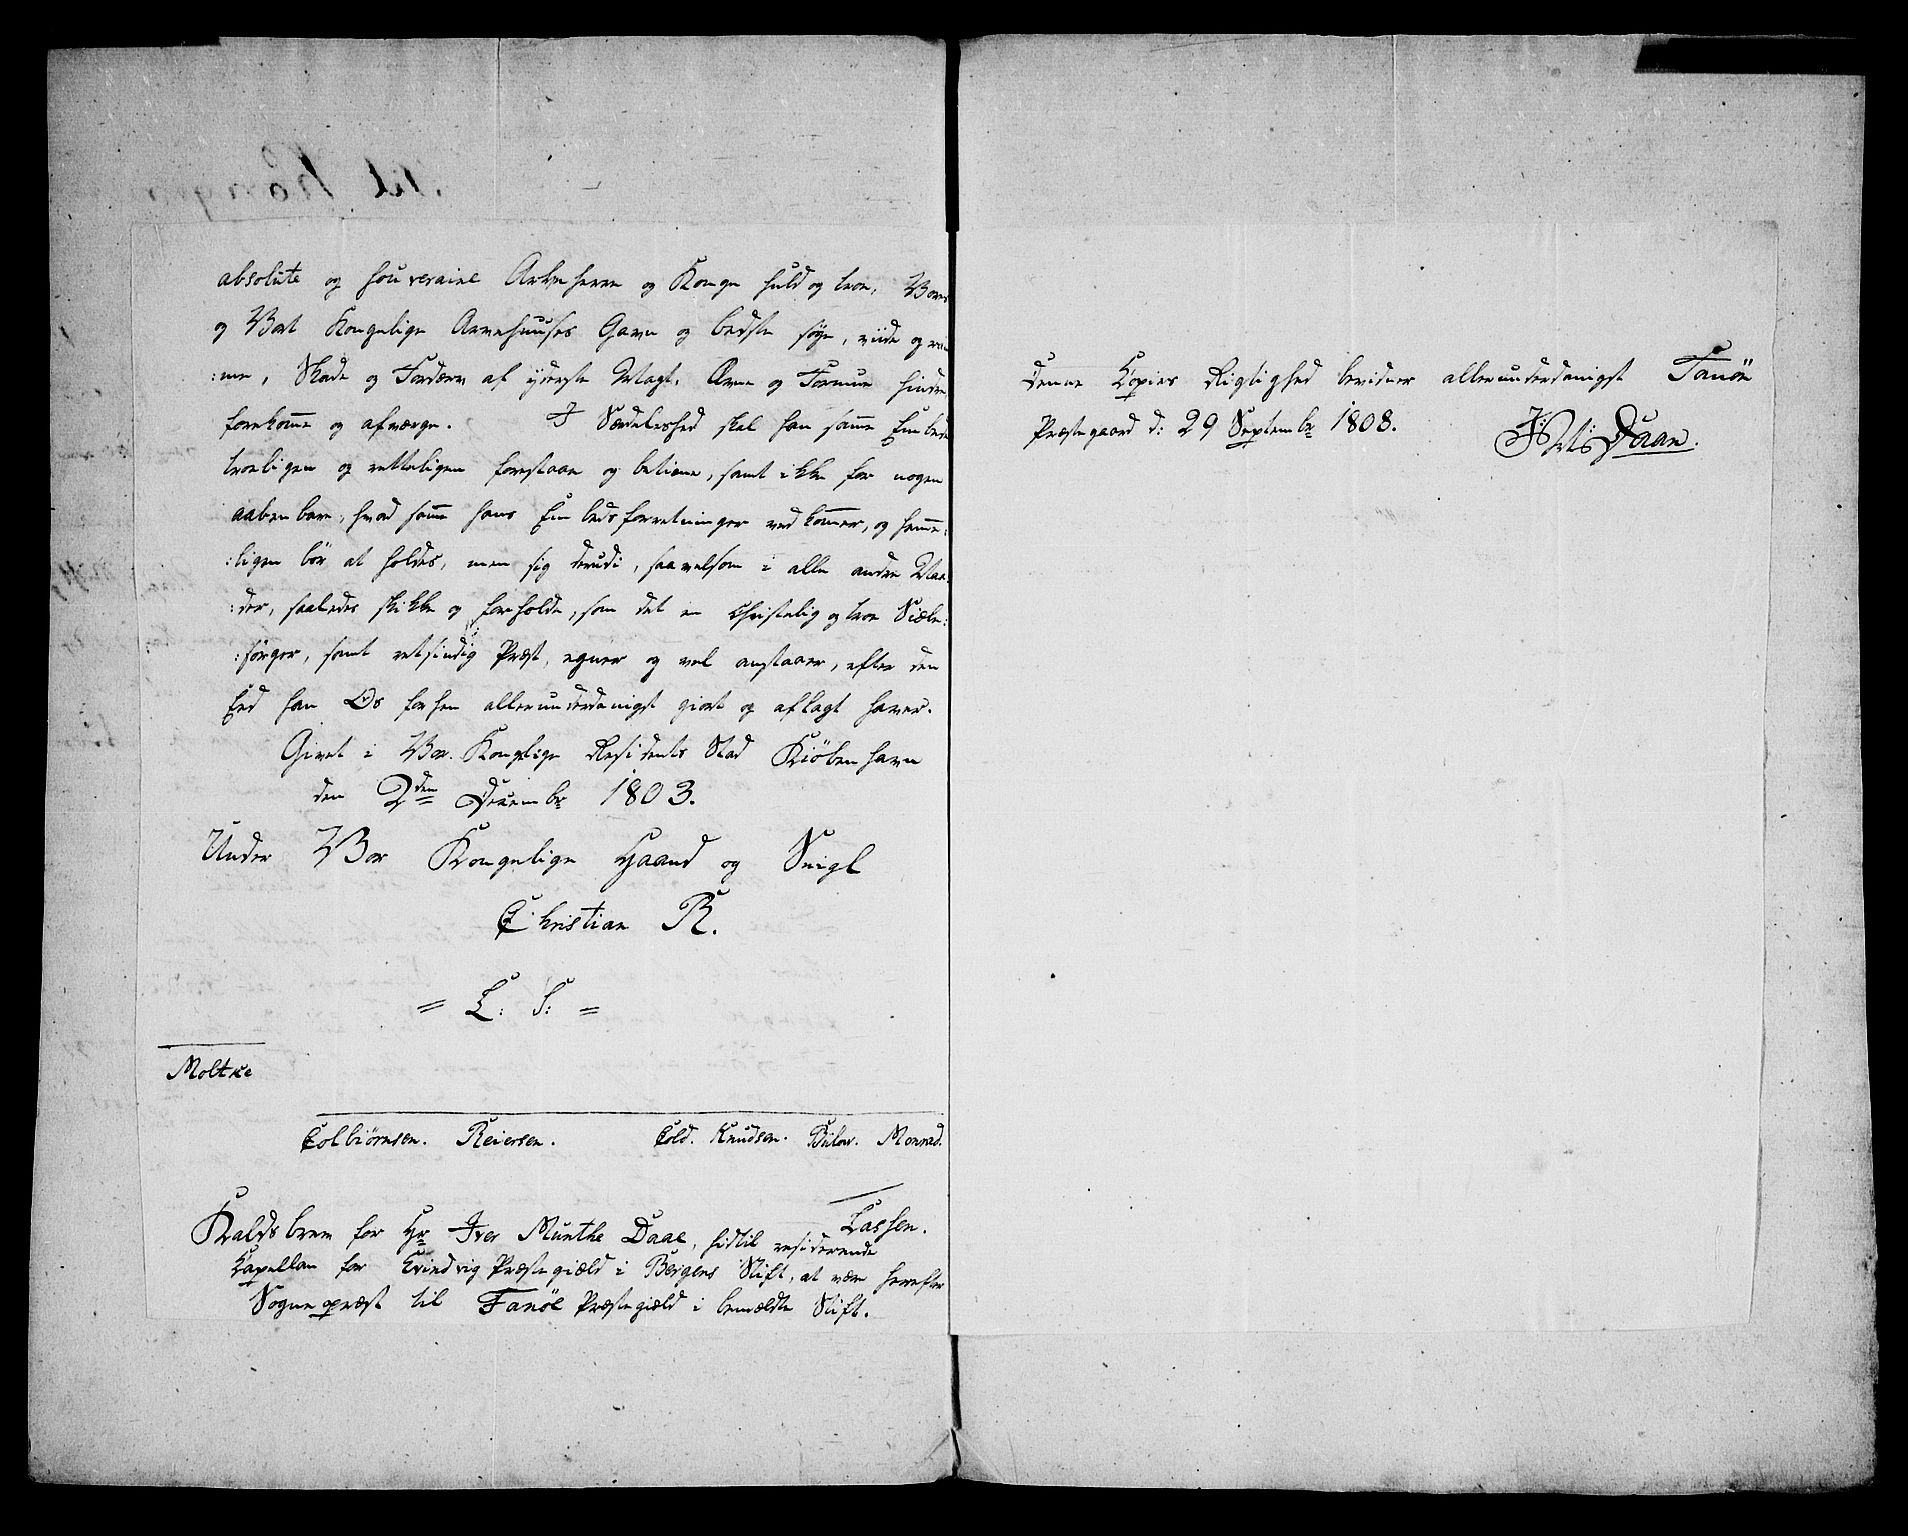 absolute og souveraine Arve Herre og Konge huld og troe, Vores
og Vort Kongelige Arvehuuses Gavn og bedste søge, viide og ram
:me, Skade og Fordærv af yderste Magt, Ævne og Formue hindre
forekom̅e og afværge. I Særdeleshed skal han sam̅e Embede
troeligen og retteligen forestaae og betiene, samt ikke for nogen
aabenbare, hvad sam̅e hans Embedsforretninger vedkom̅er, og hem̅e:
:ligen bör at holdes, men sig derudi, saavelsom i alle andre Maa:
:der, saaledes skikke og forholde, som det en Christelig og troe Siæle:
:sörger, samt retsindig Præst, egner og vel anstaaer, efter den
Eed han Os forhen allerunderdanigst giort og aflagt haver.
Givet i Vor Konglige Residents Stad Kiöbenhavn
den 2den Decembr 1803.
Under Vor Kongelige Haand og Seigl
Christian R.
= L: S: =
Moltke
Colbiørnsen. Reiersen. Cold. Knudsen. Bülow. Monrad.
Lassen.
Kaldsbrev for Hr Iver Munthe Daae, hidtil residerende
Kapellan for Evindvig Præstegiæld i Bergens Stift, at være herefter
Sognepræst til Fanöe Præstegiæld i bemældte Stift.
:til Kongen
Denne Copies Rigtighed bevidner allerunderdanigst Fanöe
Præstegaard d: 29 Septembr 1808.
I: M: Daae.